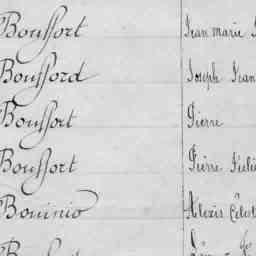 Bouffort Jean marie
Boufford Joseph Jean
Bouffort Pierre
Bouffort Pierre
Bouinio Alexis